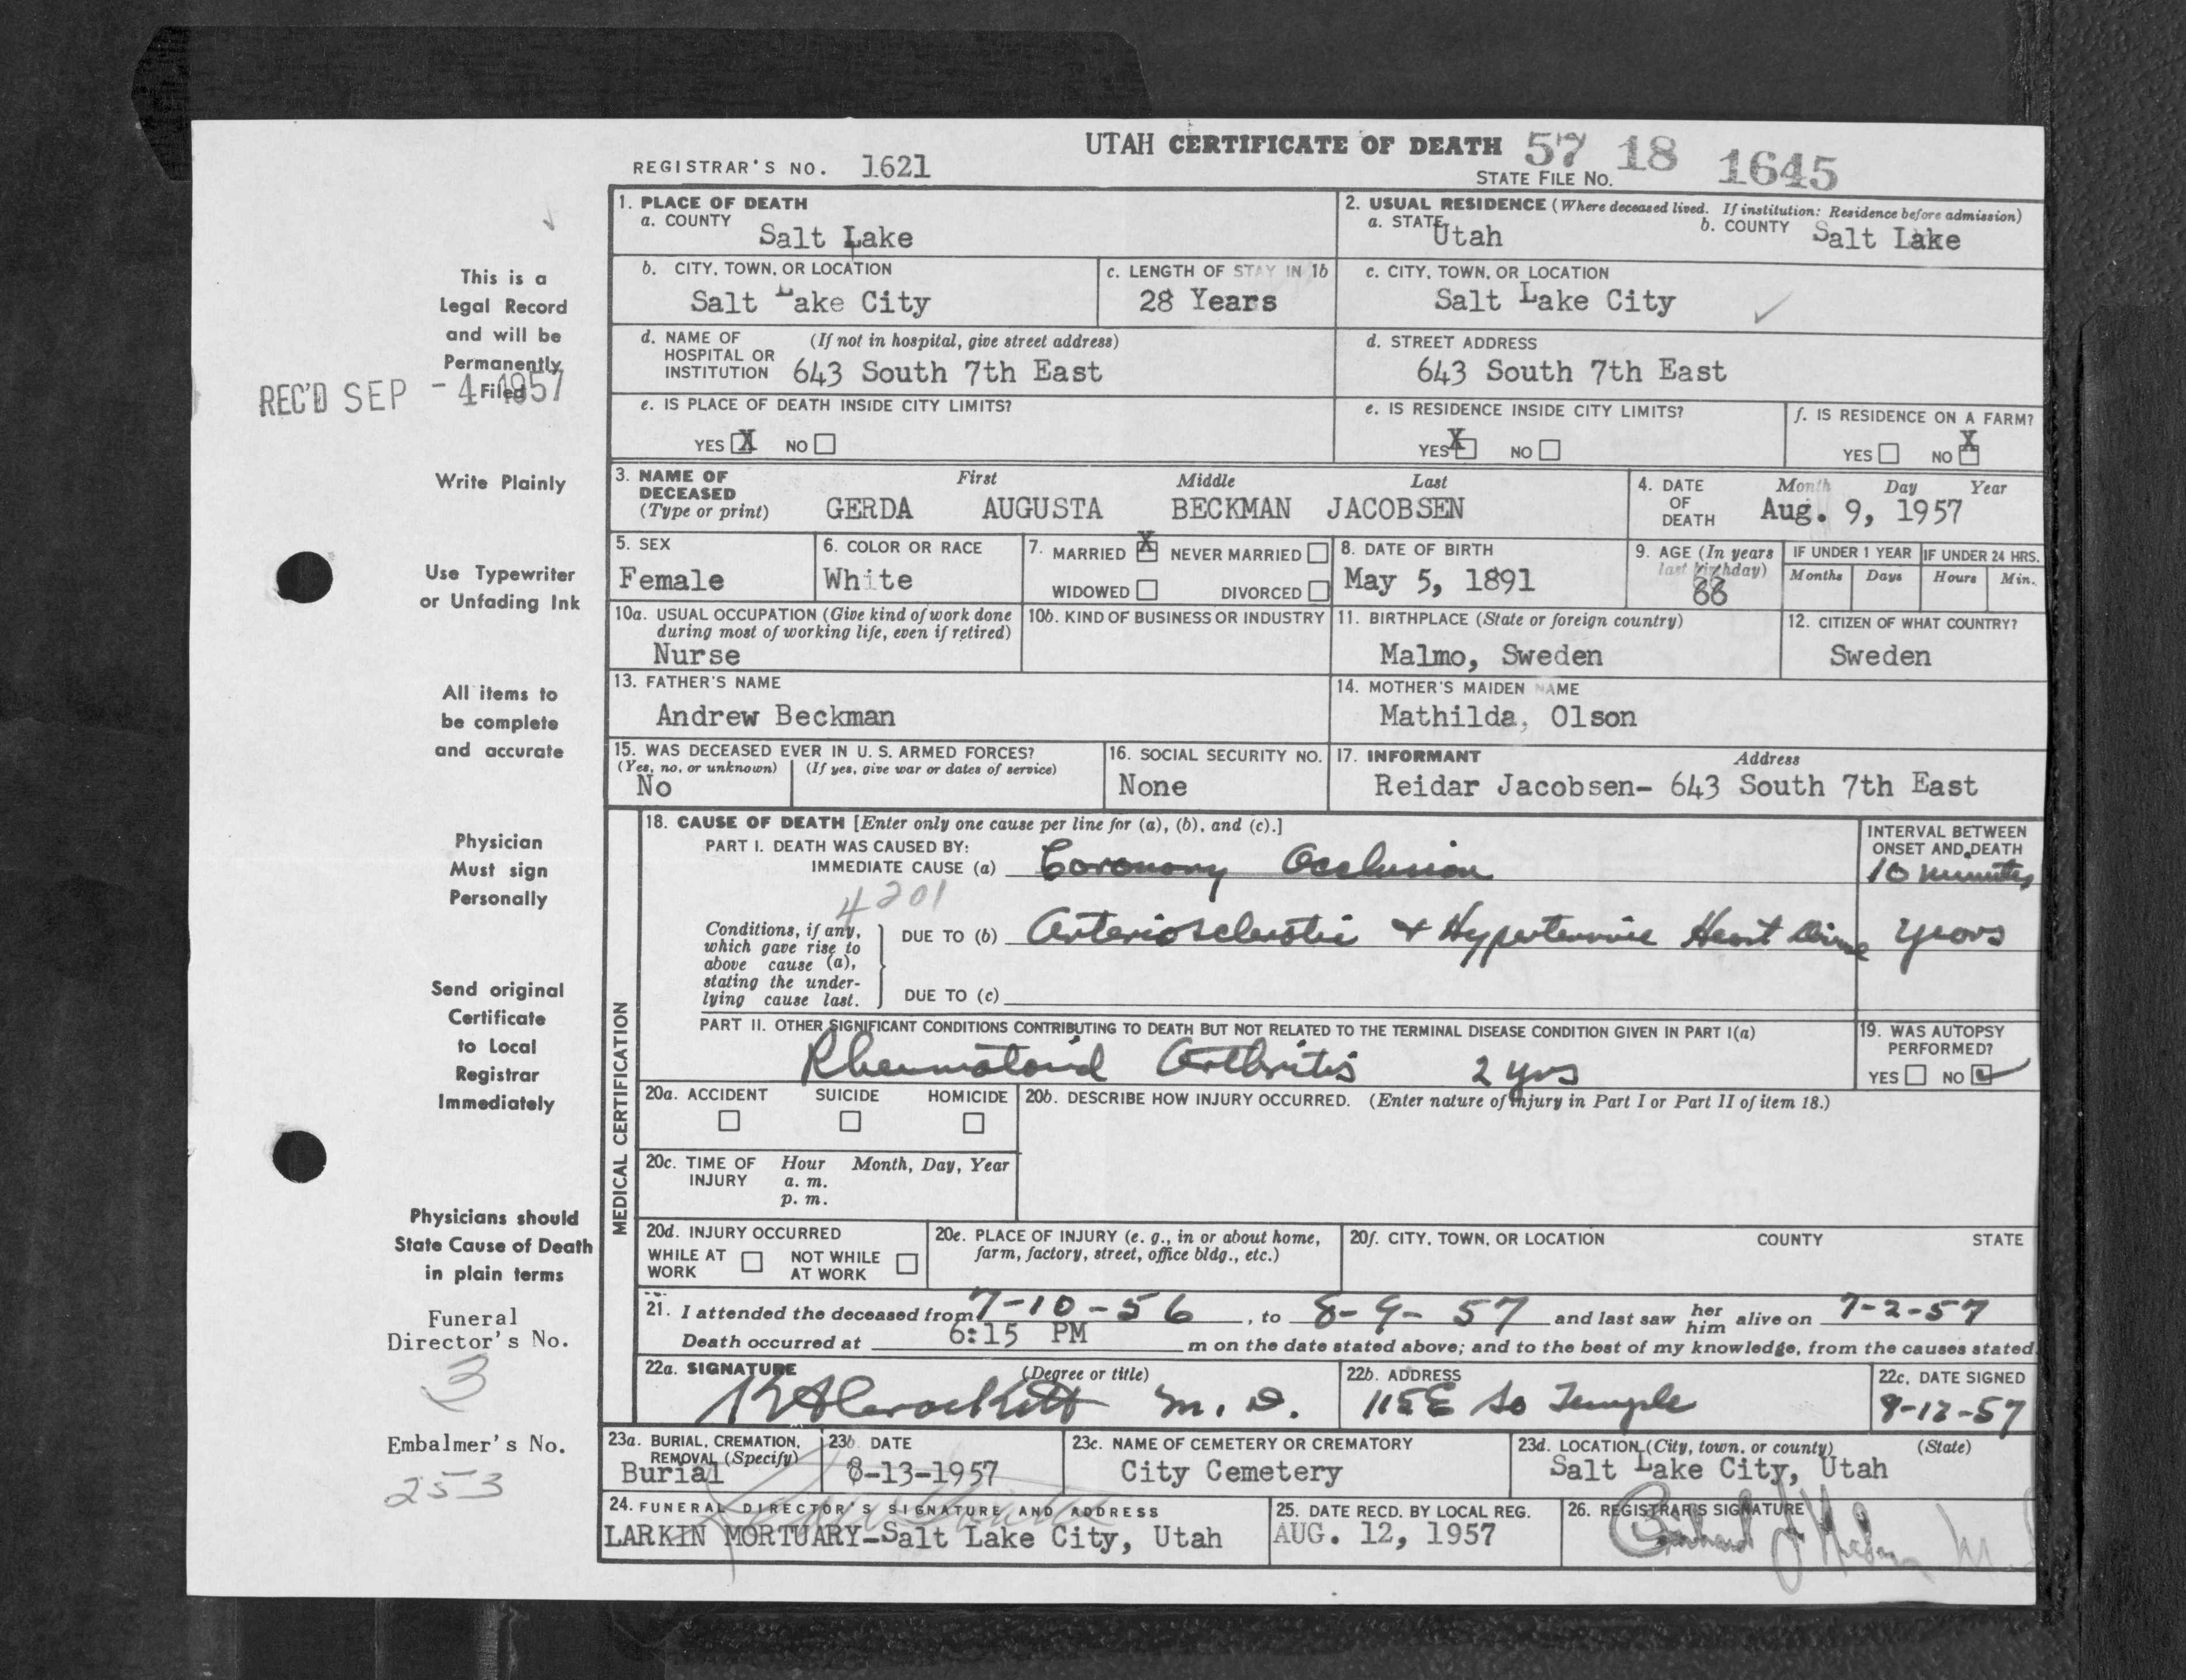 UTAH CERTIFICATE OF DEATH 57 18 1645
REGISTRAR'S NO. 1621
STATE FILE NO.
1. PLACE OF DEATH
a. COUNTY Salt Lake
2. USUAL RESIDENCE (Where deceased lived. If institution: Residence before admission)
a. STATE Utah b. COUNTY Salt Lake
b. CITY, TOWN, OR LOCATION
Salt Lake City
c. LENGTH OF STAY IN 1b
28 Years
c. CITY, TOWN, OR LOCATION
Salt Lake City
d. NAME OF HOSPITAL OR INSTITUTION (If not in hospital, give street address)
643 South 7th East
d. STREET ADDRESS
643 South 7th East
e. IS PLACE OF DEATH INSIDE CITY LIMITS?
YES X NO
e. IS RESIDENCE INSIDE CITY LIMITS?
YES X NO
f. IS RESIDENCE ON A FARM?
YES NO X
3. NAME OF DECEASED (Type or print)
First Middle Last
GERDA AUGUSTA BECKMAN JACOBSEN
4. DATE OF DEATH
Month Day Year
Aug. 9, 1957
5. SEX
Female
6. COLOR OR RACE
White
7. MARRIED X NEVER MARRIED
WIDOWED DIVORCED
8. DATE OF BIRTH
May 5, 1891
9. AGE (In years last birthday)
66
IF UNDER 1 YEAR IF UNDER 24 HRS.
Months Days Hours Min.
10a. USUAL OCCUPATION (Give kind of work done
during most of working life, even if retired)
Nurse
10b. KIND OF BUSINESS OR INDUSTRY
11. BIRTHPLACE (State or foreign country)
Malmo, Sweden
12. CITIZEN OF WHAT COUNTRY?
Sweden
13. FATHER'S NAME
Andrew Beckman
14. MOTHER'S MAIDEN NAME
Mathilda, Olson
15. WAS DECEASED EVER IN U. S. ARMED FORCES?
(Yes, no, or unknown) (If yes, give war or dates of service)
No
16. SOCIAL SECURITY NO.
None
17. INFORMANT Address
Reidar Jacobsen- 643 South 7th East
MEDICAL CERTIFICATION
18. CAUSE OF DEATH [Enter only one cause per line for (a), (b), and (c).]
INTERVAL BETWEEN
ONSET AND DEATH
PART I. DEATH WAS CAUSED BY:
IMMEDIATE CAUSE (a) Coronary Occlusion 10 minutes
4201
Conditions, if any,
which gave rise to
above cause (a),
stating the under-
lying cause last.
DUE TO (b) Arteriosclerotic & Hypertensive Heart Disease years
DUE TO (c)
PART II. OTHER SIGNIFICANT CONDITIONS CONTRIBUTING TO DEATH BUT NOT RELATED TO THE TERMINAL DISEASE CONDITION GIVEN IN PART I(a)
Rheumatoid Arthritis 2 yrs
19. WAS AUTOPSY
PERFORMED?
YES NO
20a. ACCIDENT SUICIDE HOMICIDE
20b. DESCRIBE HOW INJURY OCCURRED. (Enter nature of injury in Part I or Part II of item 18.)
20c. TIME OF INJURY Hour Month, Day, Year
a. m.
p. m.
20d. INJURY OCCURRED
WHILE AT WORK NOT WHILE AT WORK
20e. PLACE OF INJURY (e. g., in or about home,
farm, factory, street, office bldg., etc.)
20f. CITY, TOWN, OR LOCATION COUNTY STATE
21. I attended the deceased from 7-10-56, to 8-9-57 and last saw her him alive on 7-2-57
Death occurred at 6:15 PM m on the date stated above; and to the best of my knowledge, from the causes stated.
22a. SIGNATURE (Degree or title)
Crockett M.D.
22b. ADDRESS
115 E So Temple
22c. DATE SIGNED
8-12-57
23a. BURIAL, CREMATION,
REMOVAL (Specify)
Burial
23b. DATE
8-13-1957
23c. NAME OF CEMETERY OR CREMATORY
City Cemetery
23d. LOCATION (City, town, or county) (State)
Salt Lake City, Utah
24. FUNERAL DIRECTOR'S SIGNATURE AND ADDRESS
LARKIN MORTUARY-Salt Lake City, Utah
25. DATE RECD. BY LOCAL REG.
AUG. 12, 1957
26. REGISTRAR'S SIGNATURE
This is a
Legal Record
and will be
Permanently
Filed
REC'D SEP - 4 1957
Write Plainly
Use Typewriter
or Unfading Ink
All items to
be complete
and accurate
Physician
Must sign
Personally
Send original
Certificate
to Local
Registrar
Immediately
Physicians should
State Cause of Death
in plain terms
Funeral
Director's No.
3
Embalmer's No.
253